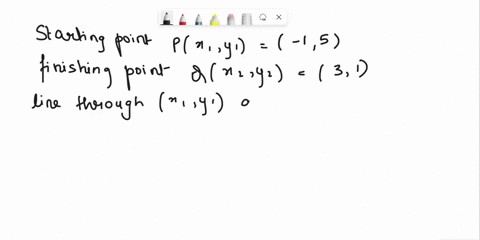 Starting point P(x₁,y₁) = (-1,5)
finishing point Q(x₂,y₂) = (3,1)
line through (x₁,y₁)